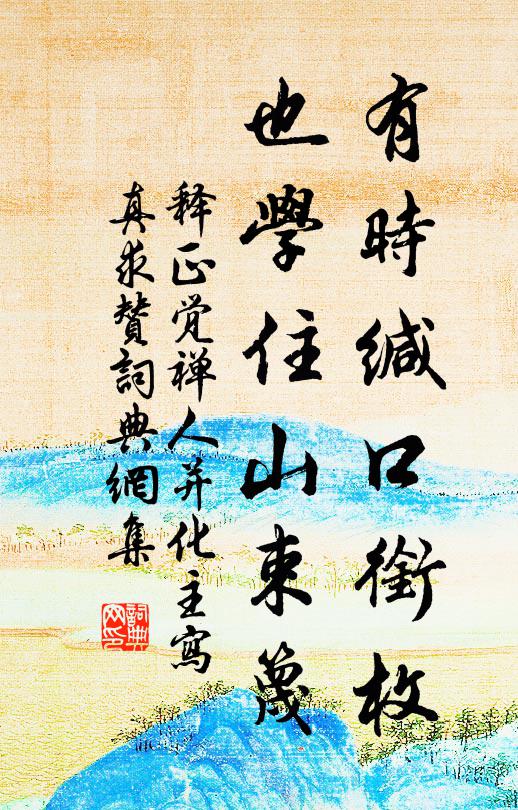 有時緘口銜枚
也學住山束蔑
释正觉禅人并化主寫
真求赞詞典網集
詞典网印